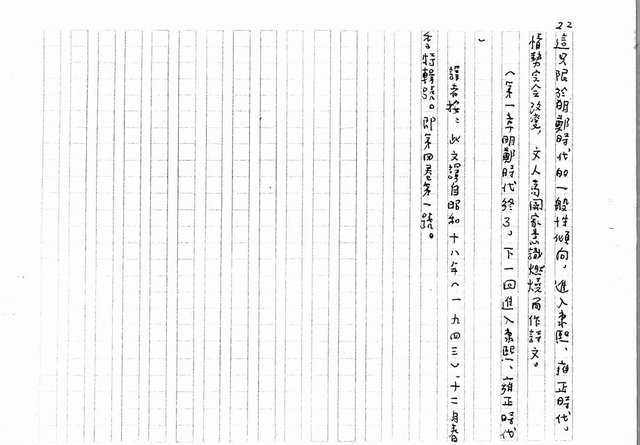 22
這只限於明鄭時代的一般性傾向，進入康熙、雍正時代，
情勢完全改變，文人為國家意識燃燒而作詩文。
（第一章明鄭時代終了，下一回進入康熙、雍正時代
）
譯者按：此文譯自昭和十八年（一九四三）、十二月春
季特輯號。即第四卷第一號。